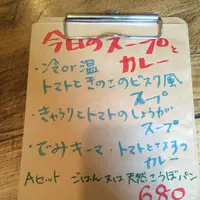 今日のスープと
カレー
・冷or温
トマトときのこのビスク風
スープ
・きゅうりとトマトのしょうが
スープ
・でみキーマ・トマトとなすの
カレー
Aセット ごはん又は天然こうぼパン
680